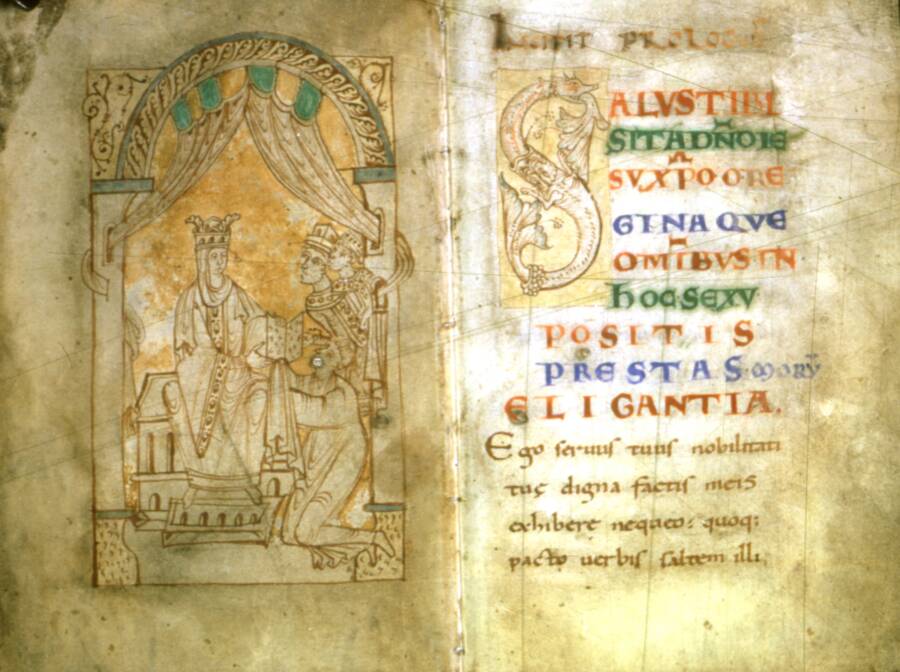 INCIPIT PROLOGUS
SALVS TIBI
SIT A DÑO IE
SV XP̄O O RE
GINA QVE
OMĪBVS IN
HOC SEXV
POSITIS
PRESTAS MORV̄
ELIGANTIA.
Ego seruus tuus nobilitati
tuę digna factis meis
exhiberę nequeo: quoq;
pacto uerbis saltem illi